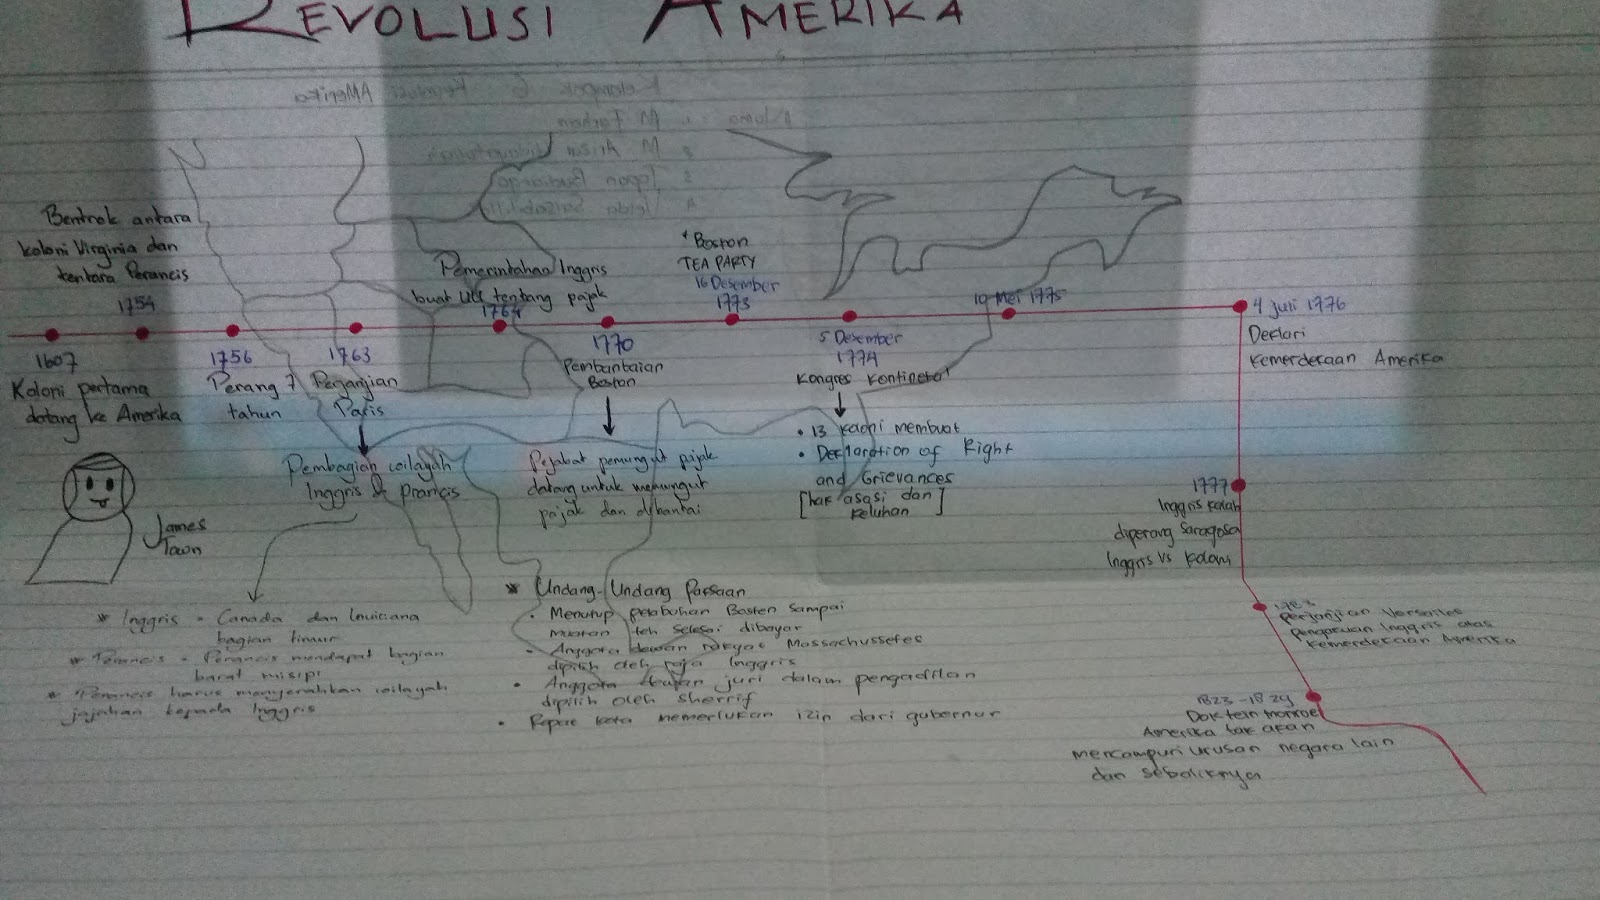 REVOLUSI AMERIKA
Bentrok antara
koloni Virginia dan
tentara Perancis
1754
1607
Koloni pertama
datang ke Amerika
1756
Perang 7
tahun
1763
Perjanjian
Paris
Pembagian wilayah
Inggris & Prancis
James
Town
* Inggris = Canada dan Louiciana
bagian timur
* Perancis = Perancis mendapat bagian
barat misipi
* Perancis harus menyerahkan wilayah
jajahan kepada Inggris
Pemerintahan Inggris
buat UU tentang pajak
1764
1770
Pembantaian
Boston
Pejabat pemungut pajak
datang untuk memungut
pajak dan dibantai
* Boston
TEA PARTY
16 Desember
1773
5 Desember
1774
Kongres Kontinetal
• 13 koloni membuat
• Declaration of Right
and Grievances
[hak asasi dan
keluhan]
* Undang-Undang Paksaan
• Menutup pelabuhan Bosten sampai
muatan teh selesai dibayar
• Anggota dewan rakyat Massachussetes
dipilih oleh raja Inggris
• Anggota dewan juri dalam pengadilan
dipilih oleh Sherrif
• Rapat kota memerlukan izin dari gubernur
10 Mei 1775
4 Juli 1776
Deklari
Kemerdekaan Amerika
1777
Inggris Kalah
diperang Saragosa
Inggris vs Koloni
1783
Perjanjian Versailes
Pengakuan Inggris atas
Kemerdekaan Amerika
1823-1829
Doktein monroe
Amerika tak akan
mencampuri urusan negara lain
dan sebaliknya